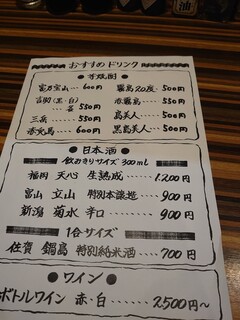 おすすめドリンク
芋焼酎
富乃宝山……600円
吉助(黒・白)
……550円
三岳……550円
赤兎馬……600円
霧島20度・500円
赤霧島……550円
島美人……500円
黒島美人……500円
日本酒
飲みきりサイズ300ml
福岡 天心 生熟成……1,200円
富山 立山 特別本醸造・900円
新潟 菊水 辛口……900円
1合サイズ
佐賀 鍋島 特別純米酒……700円
ワイン
ボトルワイン 赤・白……2,500円〜
油